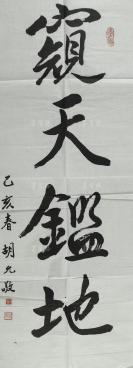 窺天鑑地
乙亥春胡允敬